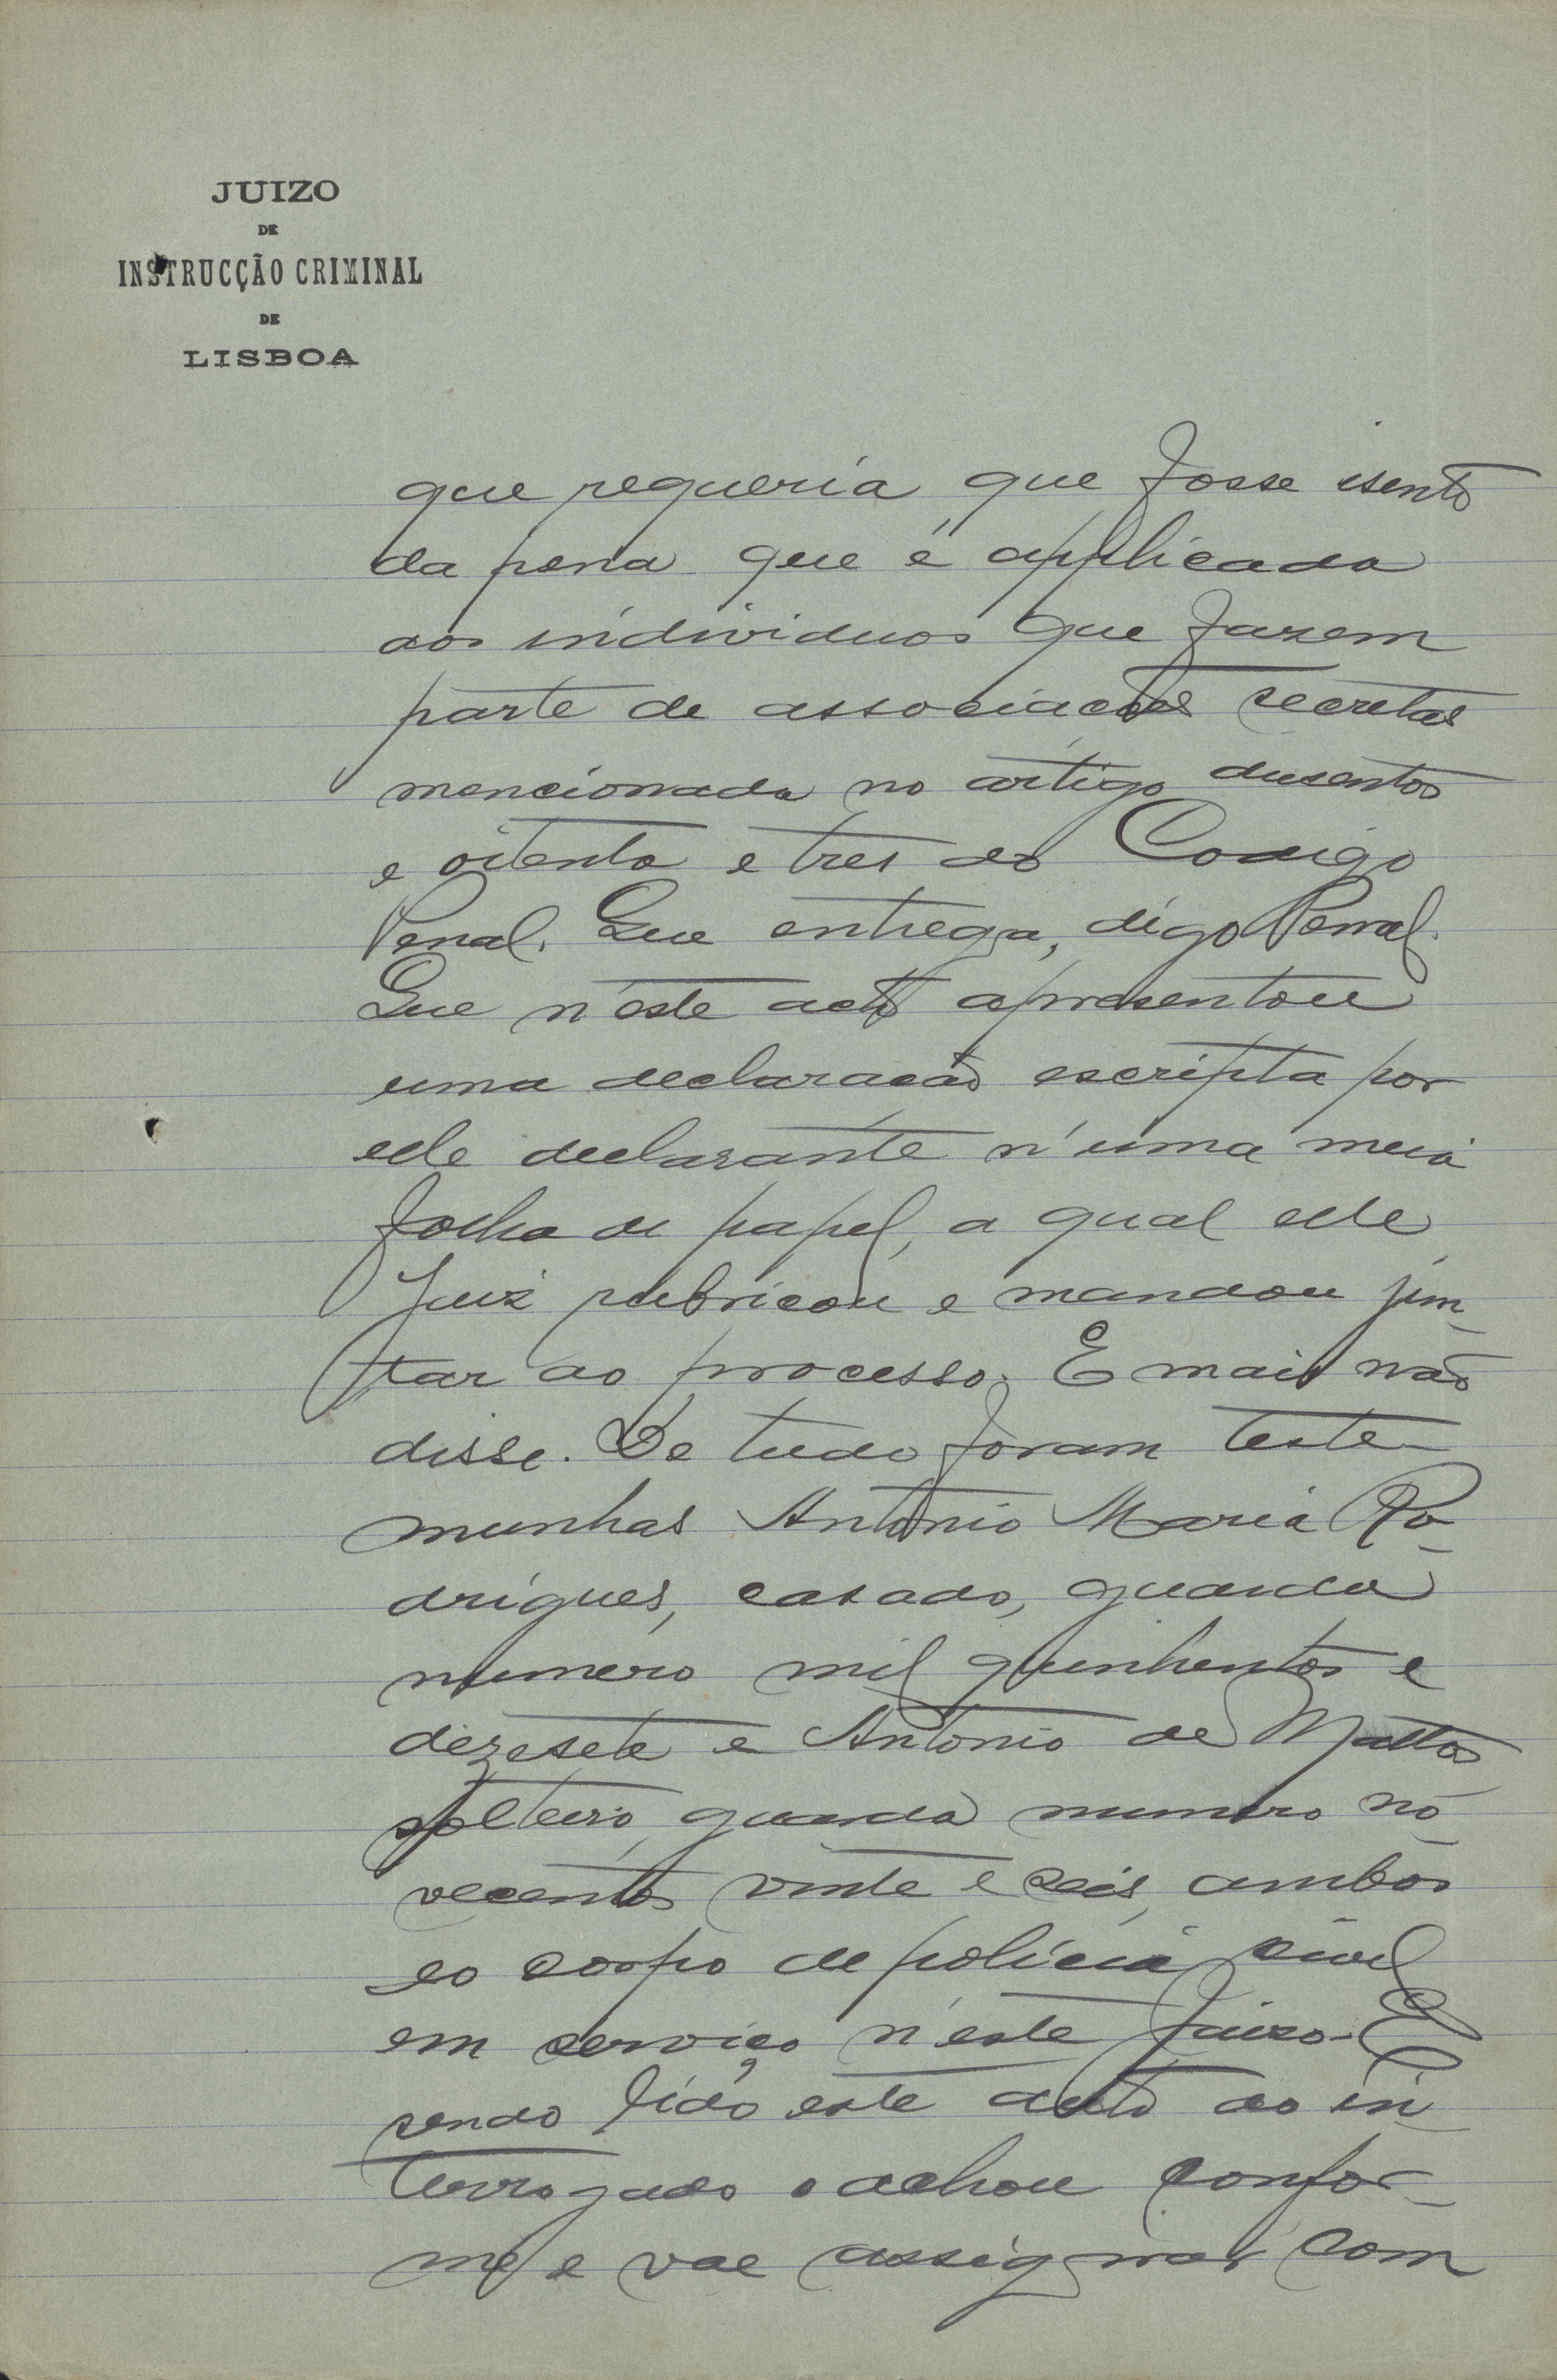 JUIZO
DE
INSTRUCÇÃO CRIMINAL
DE
LISBOA
que requeria que fosse isento
da pena que é applicada
aos individuos que fazem
parte de associações secretas
mencionada no artigo dusentos
e oitenta e tres do Codigo
Penal. Que entrega, digo Penal.
Que n'este acto apresentou
uma declaração escripta por
elle declarante n'uma meia
folha de papel, a qual elle
Juiz rubricou e mandou jun-
tar ao processo. E mais não
disse. De tudo foram teste-
munhas Antonio Maria Ro-
drigues, casado, guarda
numero mil quinhentos e
dezesete e Antonio de Mattos
solteiro, guarda numero no-
vecentos vinte e seis, ambos
do corpo de policia civil
em serviço n'este Juizo. E
sendo lido este auto ao in-
terrogado o achou confor-
me e vae assignar com